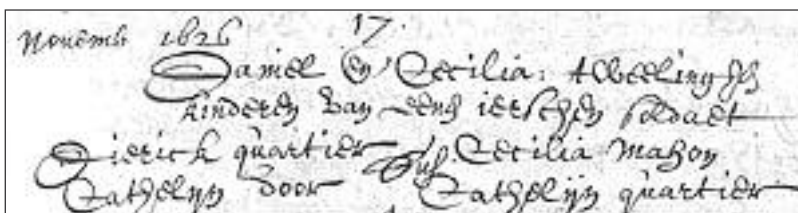 Novemb 1626 17.
Daniel en Cecilia: tweelingh
kinderen van eenen ierschen soldaet
Dierick quartier Cecilia Mahon
Cathelijn door Cathelijn quartier